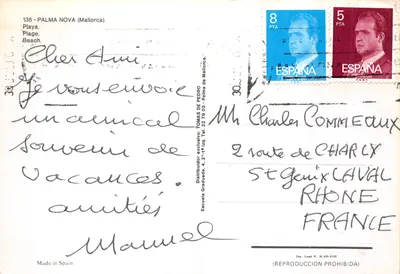 135 - PALMA NOVA (Mallorca)
Playa.
Plage.
Beach.
Cher Ami
Je vous envoie
un amical
souvenir de
vacances.
amitiés
Manuel
Made in Spain
Distribuidor exclusivo: TOMAS DE PEDRO
Escuela Graduada, 4, 2.º - 1.ª izq. Tel. 22 76 03 - Palma de Mallorca.
8
PTA
ESPAÑA
5
PTA
ESPAÑA
Mr Charles COMMEAUX
2 route de CHARLY
St Genix LAVAL
RHONE
FRANCE
(REPRODUCCION PROHIBIDA)